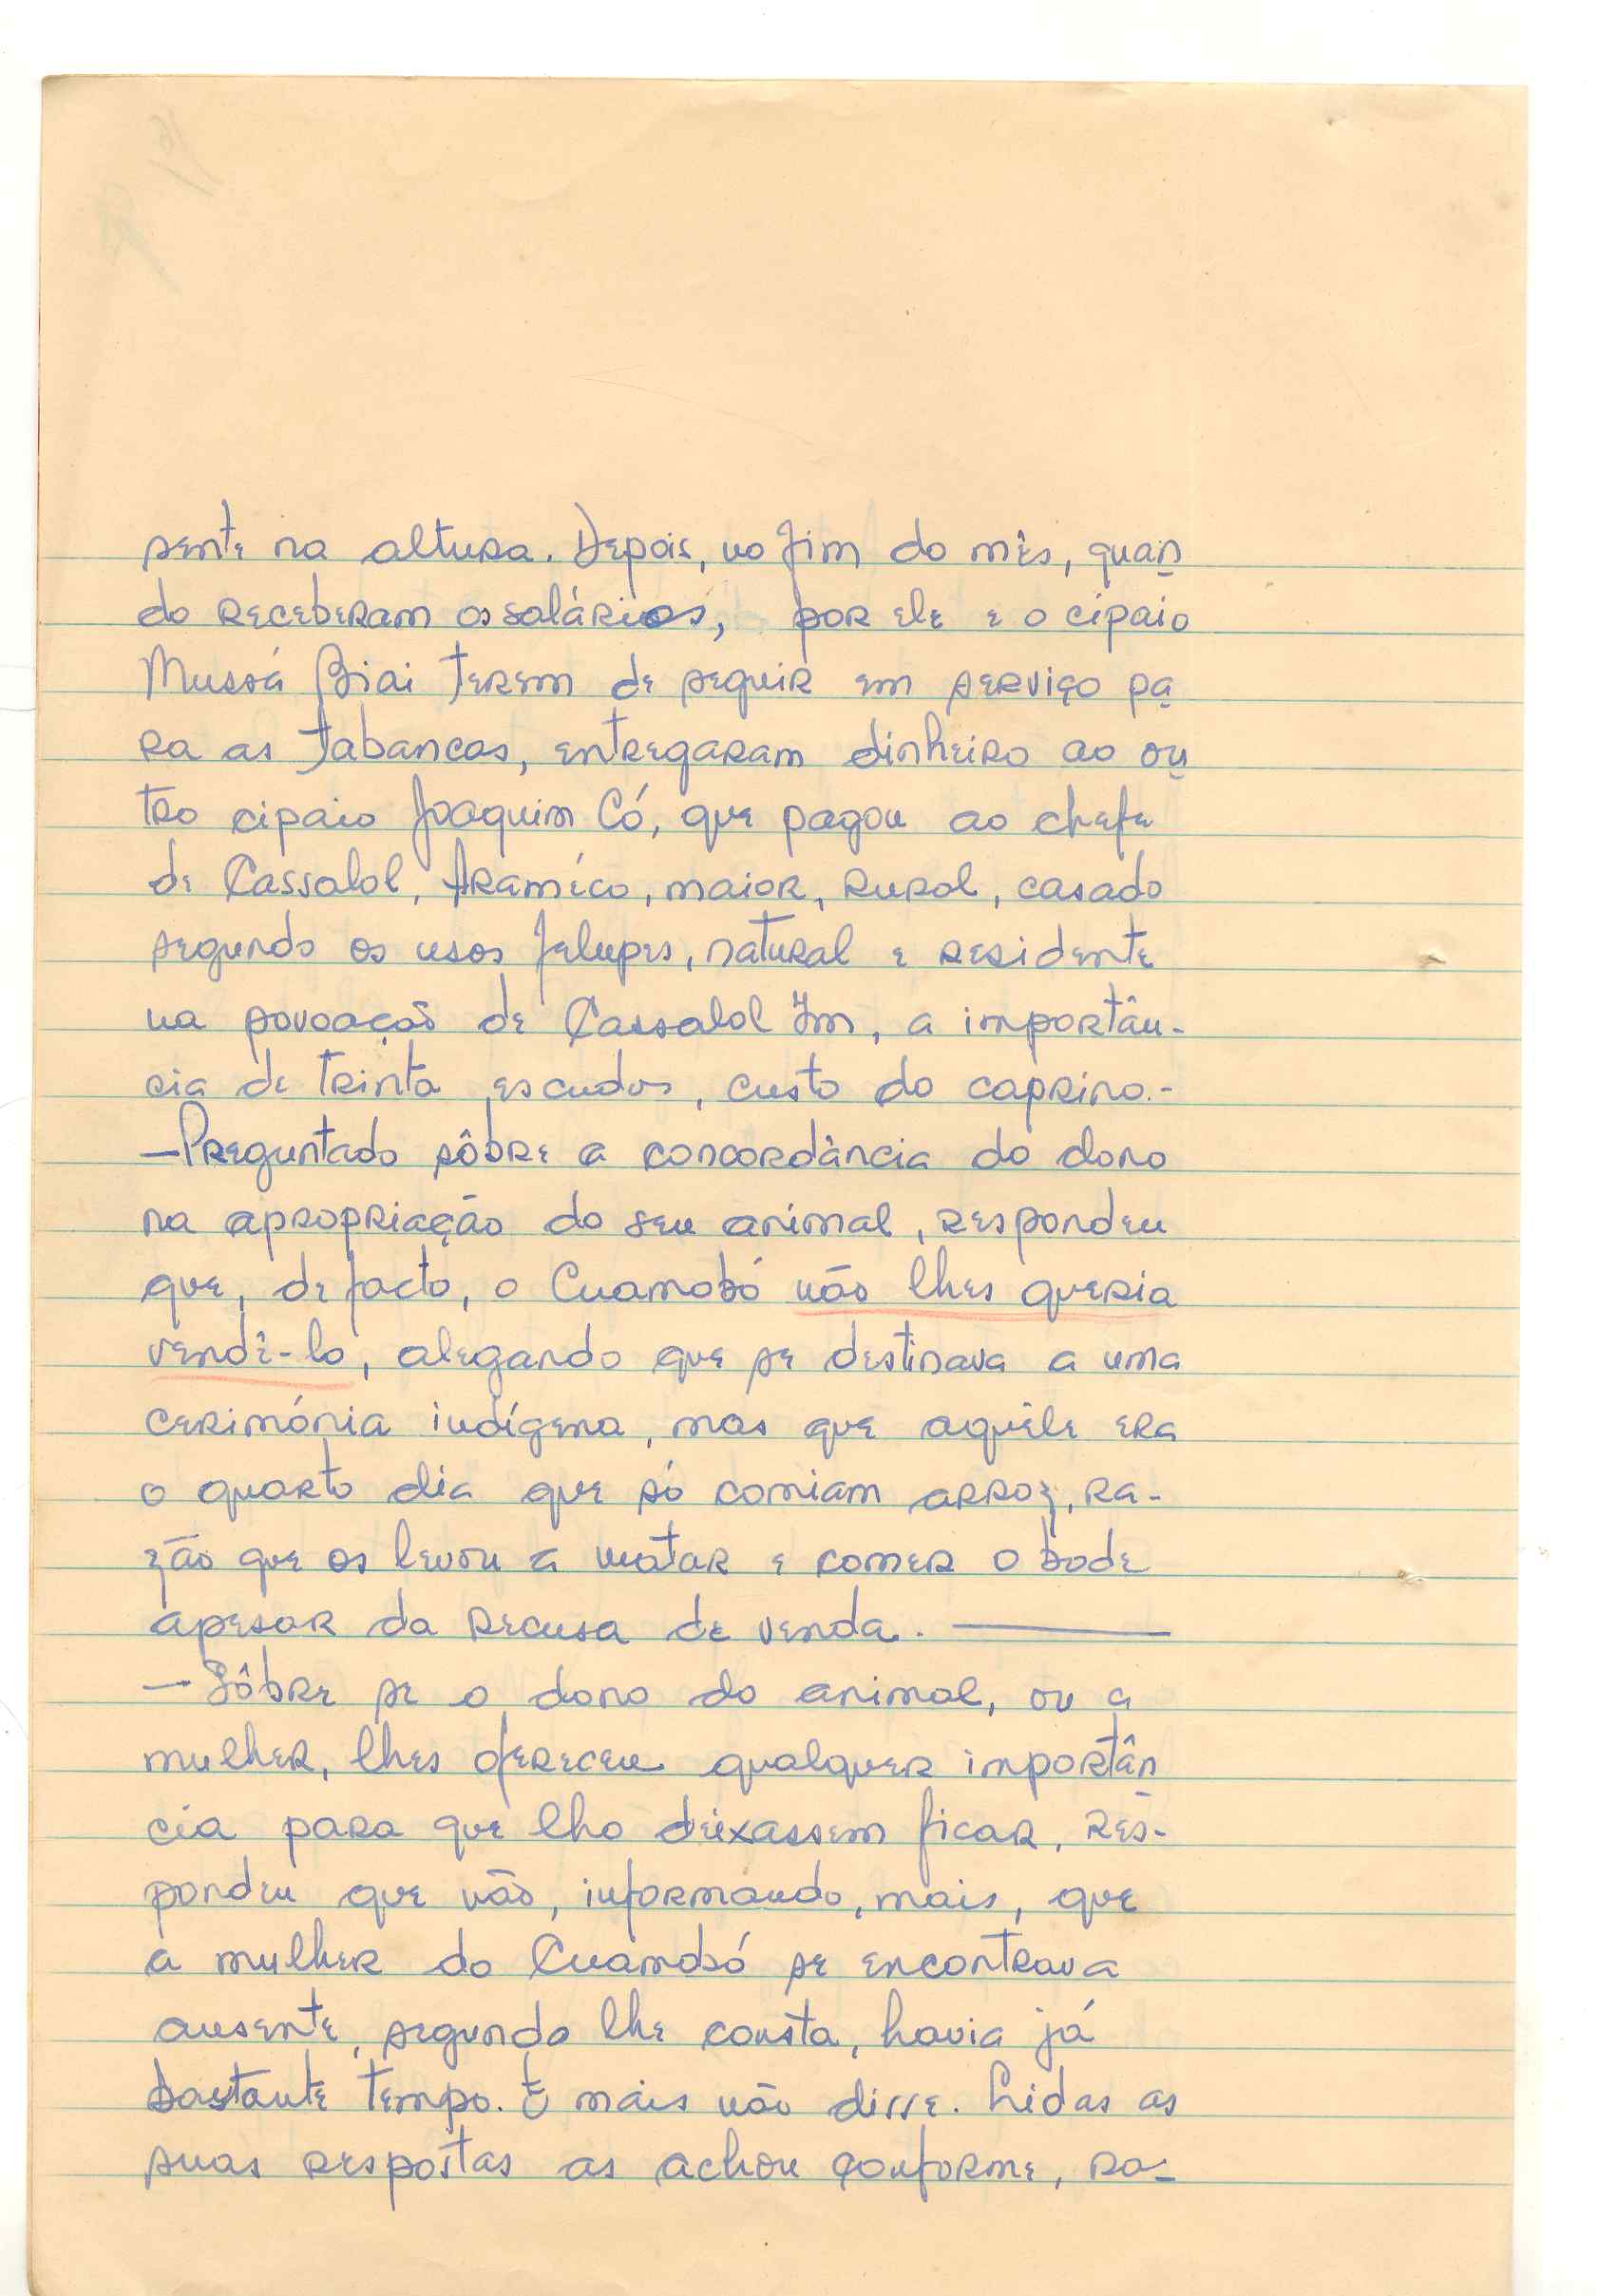 sente na altura. Depois, no fim do mês, quan
do receberam os salários, por ele e o cipaio
Mussá Biai terem de seguir em serviço pa
ra as tabancas, entregaram dinheiro ao ou
tro cipaio Joaquim Có, que pagou ao chefe
de Cassalol, Araméco, maior, rural, casado
segundo os usos felupes, natural e residente
na povoação de Cassalol Im, a importân-
cia de trinta escudos, custo do caprino.-
—Preguntado sôbre a concordância do dono
na apropriação do seu animal, respondeu
que, de facto, o Cuambó não lhes queria
vendê-lo, alegando que se destinava a uma
cerimónia indígena, mas que aquêle era
o quarto dia que só comiam arroz, ra-
zão que os levou a matar e comer o bode
apesar da recusa de venda. ———
— Sôbre se o dono do animal, ou a
mulher, lhes ofereceu qualquer importân
cia para que lho deixassem ficar, res-
pondeu que não, informando, mais, que
a mulher do Cuambó se encontrava
ausente, segundo lhe consta, havia já
bastante tempo. E mais não disse. Lidas as
suas respostas as achou conforme, ra-